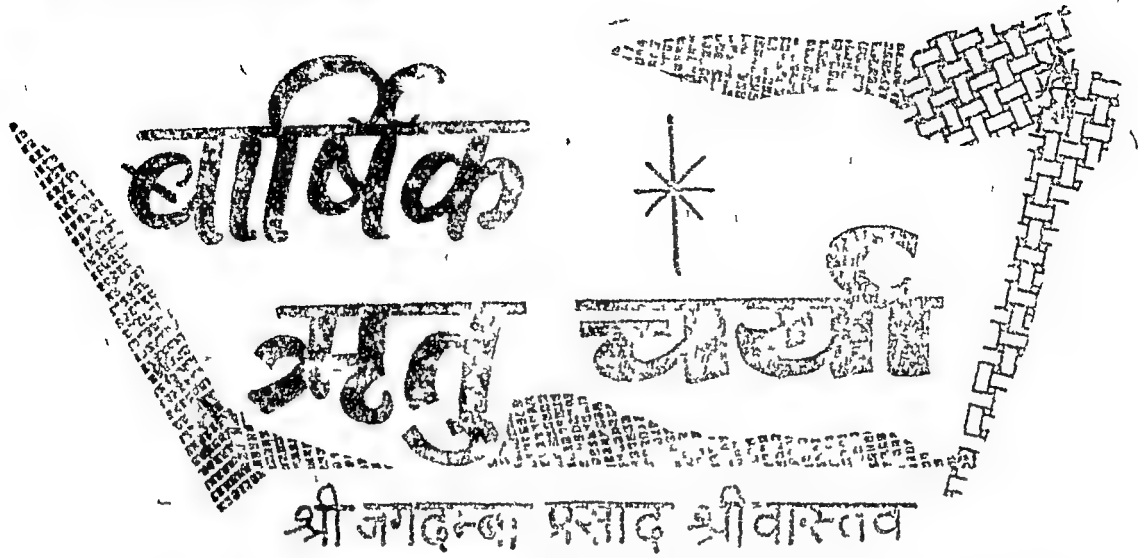 वार्षिक
ऋतु चर्या
श्री जगदम्बा प्रसाद श्रीवास्तव